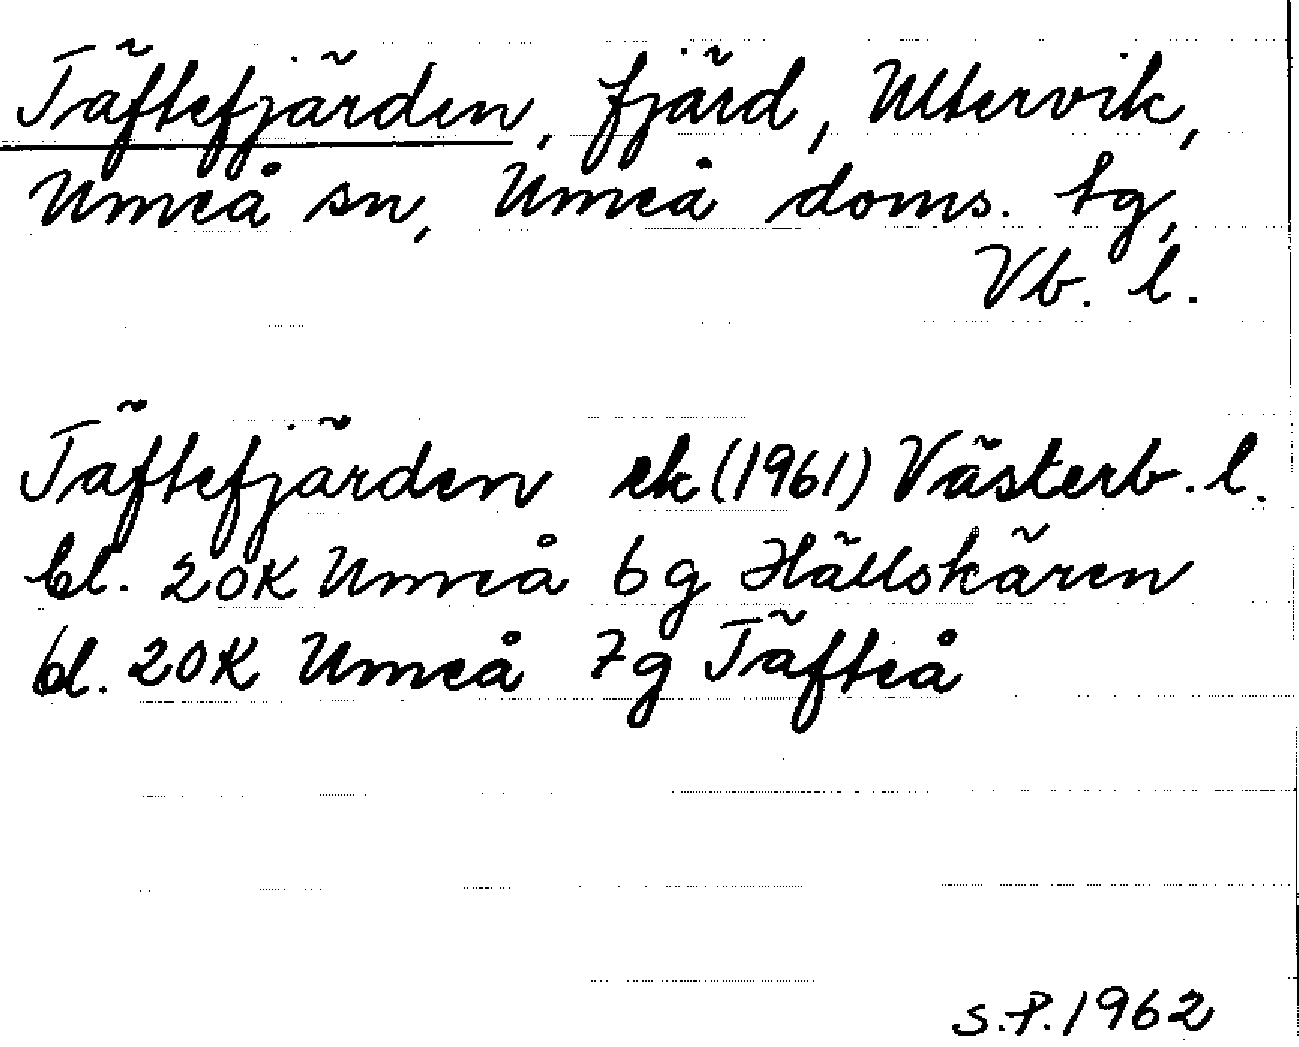 Täftefjärden, fjärd, Ultervik,
Umeå sn, Umeå doms. tg,
Vb. l.
Täftefjärden ek (1961) Västerb. l.
bl. 20K Umeå 6g Hällskären
bl. 20K Umeå 7g Täfteå
S.P. 1962